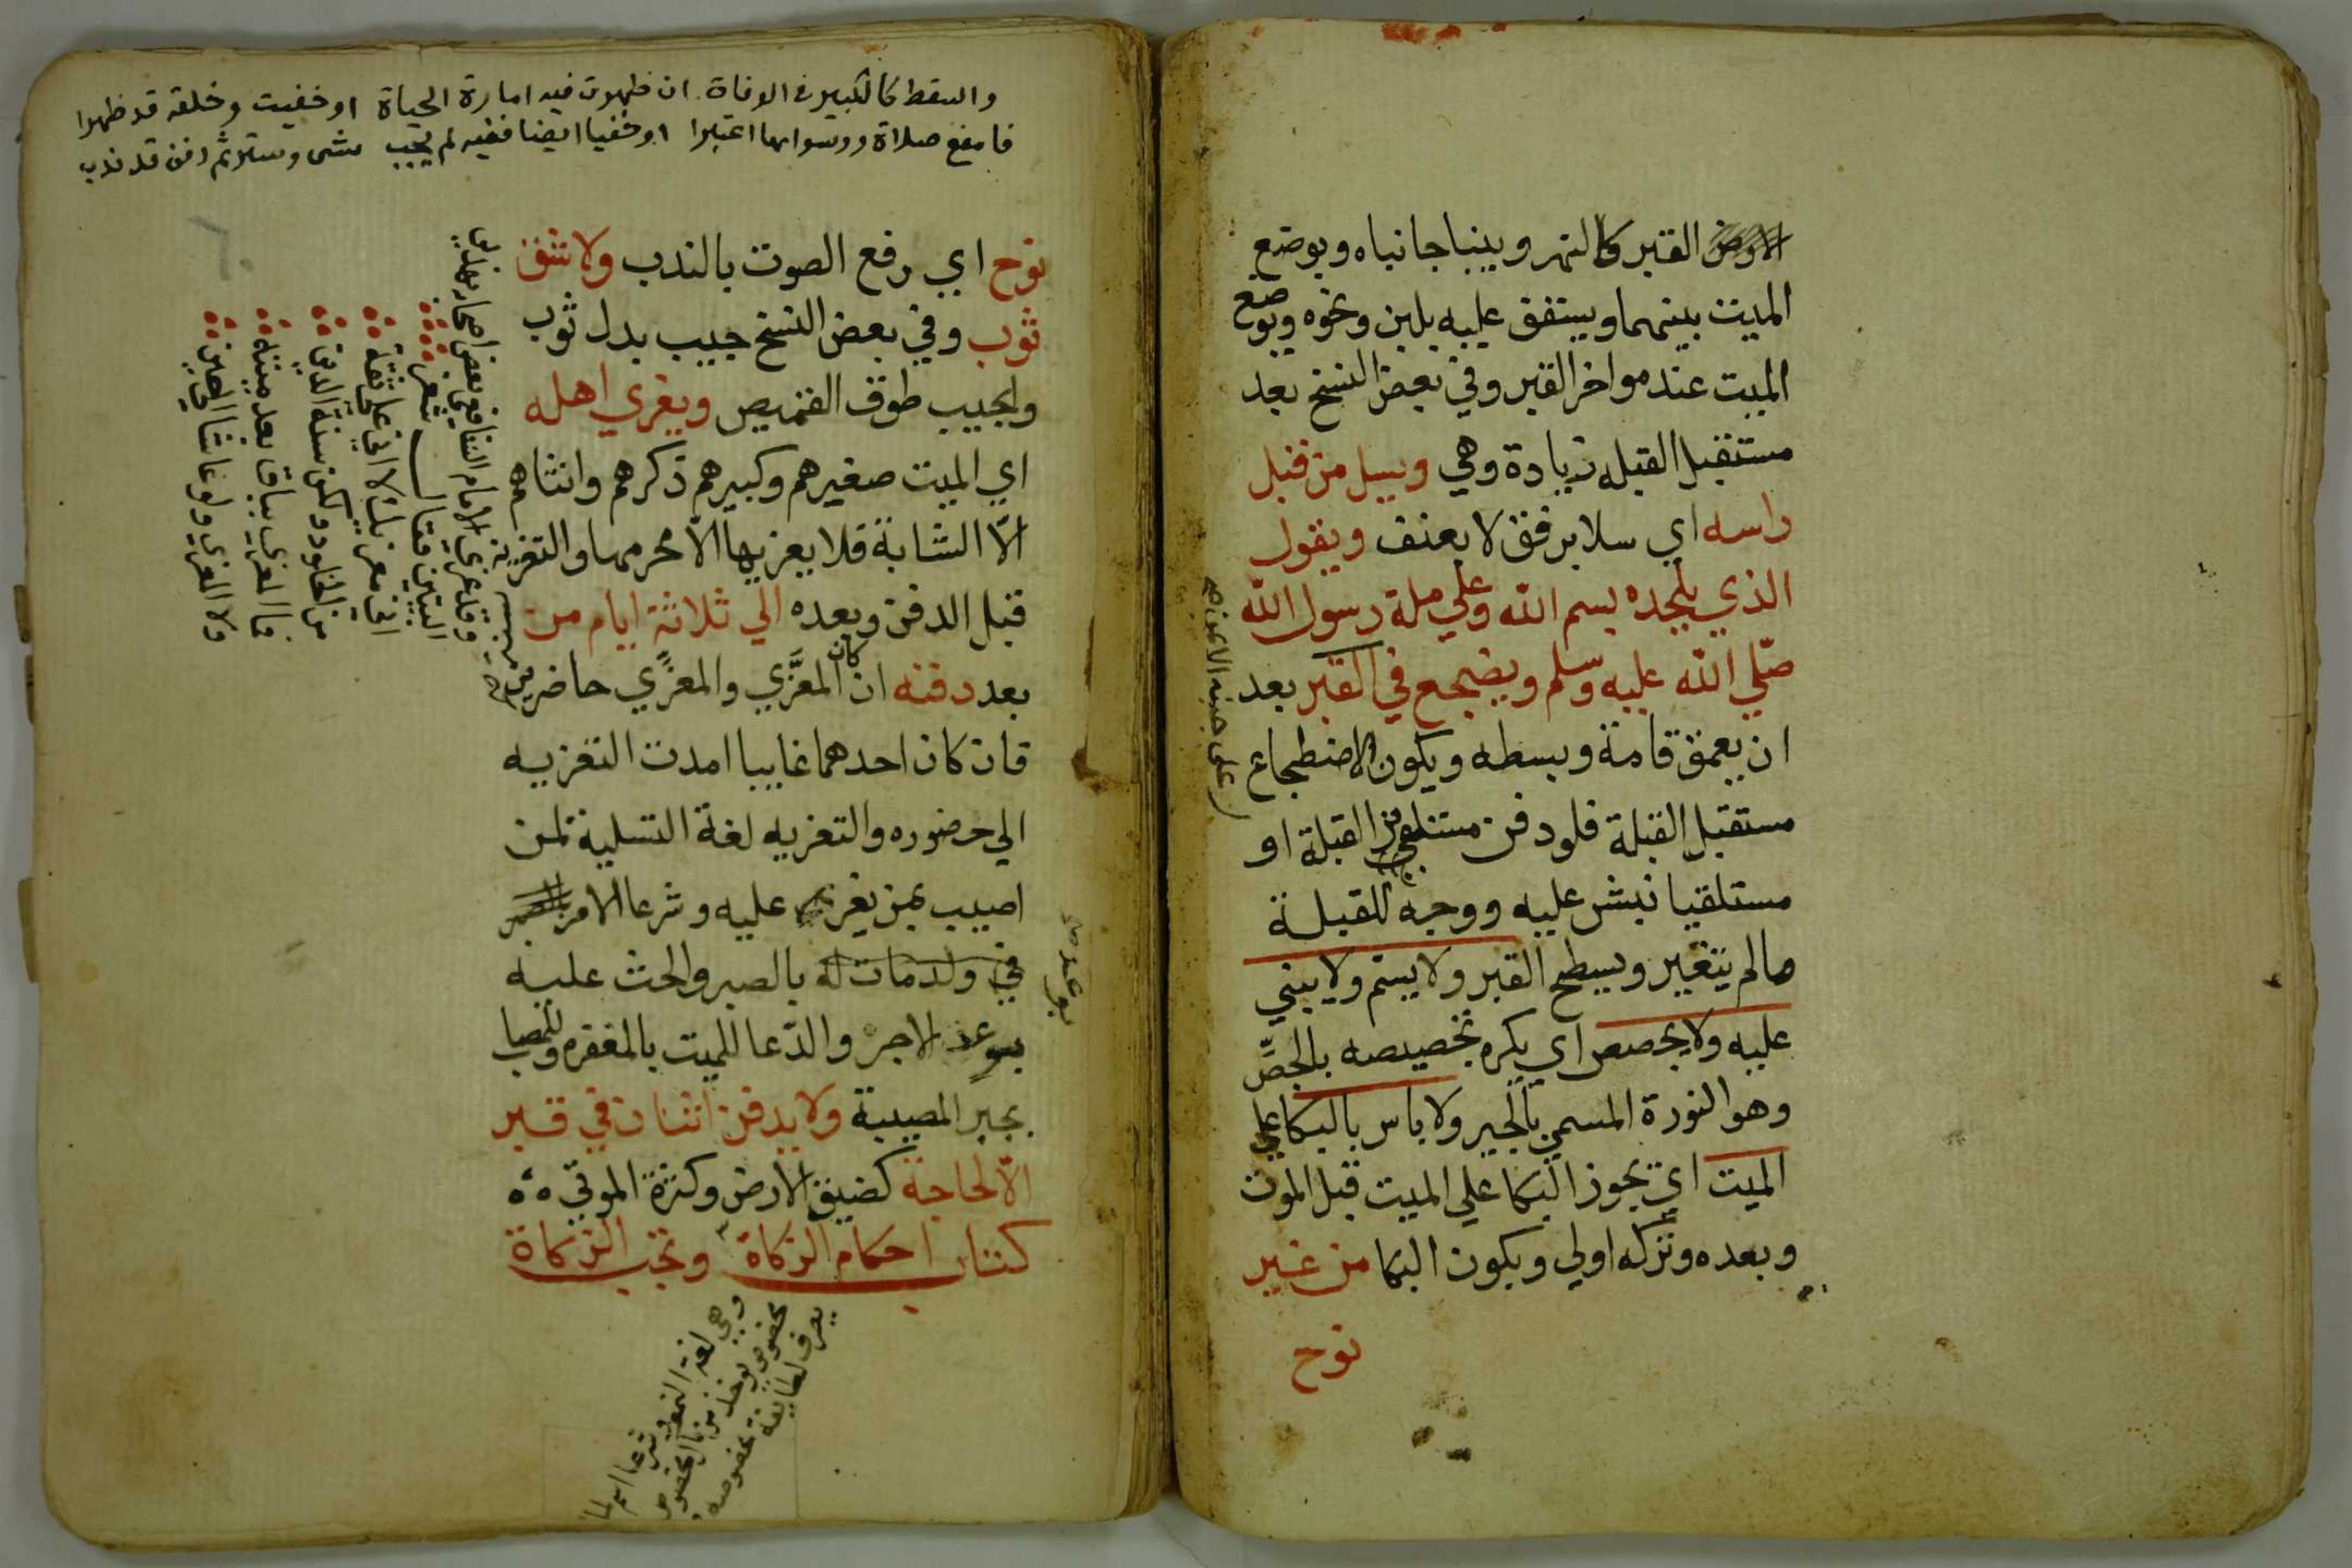 القبر كالنهر ويبنبا جانباه ويوضع
الميت بينهما ويسقف عليه بلبن ونحوه ويوضع
الميت عند مواخر القبر وفي بعض النسخ بعد
مستقبل القبله زيادة وهي ويسل من قبل
راسه اي سلا برفق لا بعنف ويقول
الذي يلحده بسم الله وعلي ملة رسول الله
صلي الله عليه وسلم ويضجع في القبر بعد
ان يعمق قامة وبسطه ويكون الاضطجاع
على جنبه الايمن صح
مستقبل القبلة فلو دفن مستدبر القبلة او
مستلقيا نبش عليه ووجه للقبلة
مالم يتغير ويسطح القبر ولا يسنم ولا يبني
عليه ولا يجصص اي يكره تجصيصه بالجصّ
وهو النورة المسمي بالجير ولا باس بالبكا علي
الميت اي يجوز البكا علي الميت قبل الموت
وبعده وتركه اولي ويكون البكا من غير
نوح
والسقط كالكبير في الوفاة ان ظهرت فيه امارة الحياة او خفيت وخلقه قد ظهرا
فامنع صلاة وسواها اعتبرا او خفيا ايضا ففيه لم يجب شى وستر ثم دفن قد ندب
نوح اي رفع الصوت بالندب ولا شق
ثوب وفي بعض النسخ جيب بدل ثوب
والجيب طوق القميص ويعزي اهله
اي الميت صغيرهم وكبيرهم ذكرهم وانثاهم
الّا الشابة فلا يعزيها الّا محرمها والتعزية
قبل الدفن وبعده الي ثلاثة ايام من
بعد دفنه ان كان المعزَّي والمعزِّي حاضرين
فان كان احدهما غايبا امدت التعزيه
الي حضوره والتعزيه لغة التسلية لمن
اصيب بمن يعز عليه وشرعا الامر
في ولد مات له بالصبر والحث عليه
بوعد الاجر والدّعا للميت بالمغفره وللمصاب
بوعد صح
بجبر المصيبة ولا يدفن اثنان في قبر
الّا لحاجة كضيق الارض وكثرة الموتي
كتاب احكام الزكاة وتجب الزكاة
وقد عزي الامام الشافعي بعض اصحابه بهذين
البيتين فقال شعر
اني معزيك لا اني على ثقة
من الخلود ولكن سنة الدين
فما المعزى بباق بعد ميته
ولا المعزي ولو عاشا الى حين
وهي لغة النمو وشرعا اسم لما
مخصوص يوخذ من مال مخصوص
يصرف لطايفة مخصوصة